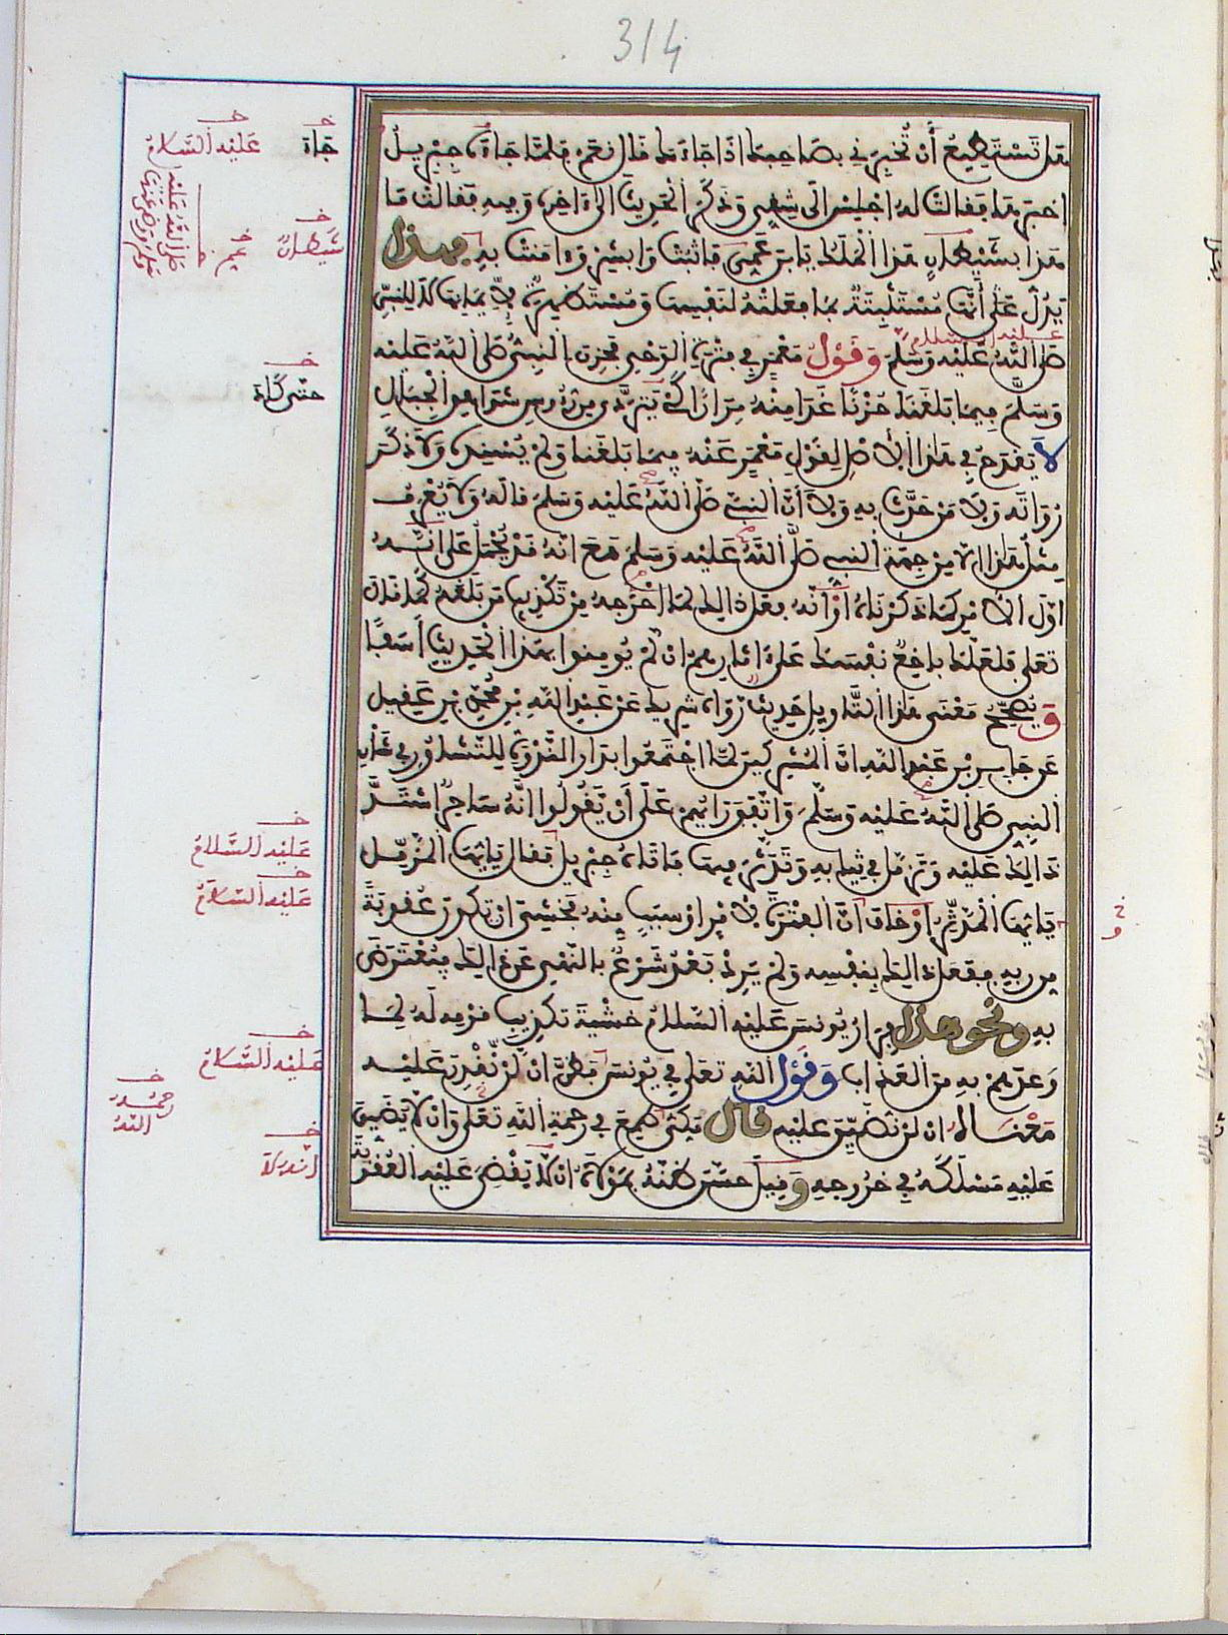 314
هل تستطيع أن تخبرني بصاحبك اذا جاءك قال نعم فلما جاءه جبريل
اخبرها فقالت له اجلس الى شقي وذكر الحديث الى ءاخره وفيه فقالت ما
هذا بشيطان هذا الملك يابن عمي فاثبت وابشر وءامنت به فهذا
يدل على أنها مستثبتة بما فعلته لنفسها ومستظهرة لايمانها لا للنبي
عليه السلام
صلى الله عليه وسلم وقول معمر في فترة الوحي فحزن النبي صلى الله عليه
وسلم فيما بلغنا حزنا غدا منه مرارا كي يتردى من شواهق الجبال
لا يقدح في هذا الاصل لقول معمر عنه فيما بلغنا ولم يسنده ولا ذكر
رواته ولا من حدث به ولا أن النبي صلى الله عليه وسلم قاله ولا يعرف
مثل هذا الا من جهة النبي صلى الله عليه وسلم مع انه قد يحمل على انه
اول الامر كما ذكرناه او أنه فعل ذالك لما احرجه من تكذيب من بلغه كما قال
تعلى فلعلك باخع نفسك على ءاثارهم ان لم يومنوا بهذا الحديث اسفا
ويصحح معنى هذا التاويل حديث رواه شريك عن عبد الله بن محمد بن عقيل
عن جابر بن عبد الله ان المشركين لما اجتمعوا بدار الندوة للتشاور في شأن
النبي صلى الله عليه وسلم واتفق رايهم على أن يقولوا انه ساحر اشتد
ذالك عليه وتزمل في ثيابه وتدثر فيها فاتاه جبريل فقال يايها المزمل
يايها المدثر او خاف ان الفترة لامر او سبب منه فخشي ان تكون عقوبة
من ربه ففعل ذالك بنفسه ولم يرد بعد شرع بالنهي عن ذالك فيعترض
به ونحو هذا فرار يونس عليه السلام خشية تكذيب قومه له لما
وعدهم به من العذاب وقول الله تعلى في يونس فظن ان لن نقدر عليه
معناه ان لن نضيق عليه قال مكي طمع في رحمة الله تعلى وان لا يضيق
عليه مسلكه في خروجه وقيل حسن ظنه بمولاه ان لا يقضي عليه العقوبة
خ
جاء
خ
عليه السلام
خ
شيطان
صلى الله عليه
خ
حتى كاد
خ
عليه السلام
خ
عليه السلام
خ
عليه السلام
خ
رحمه
الله
خ
انه لا